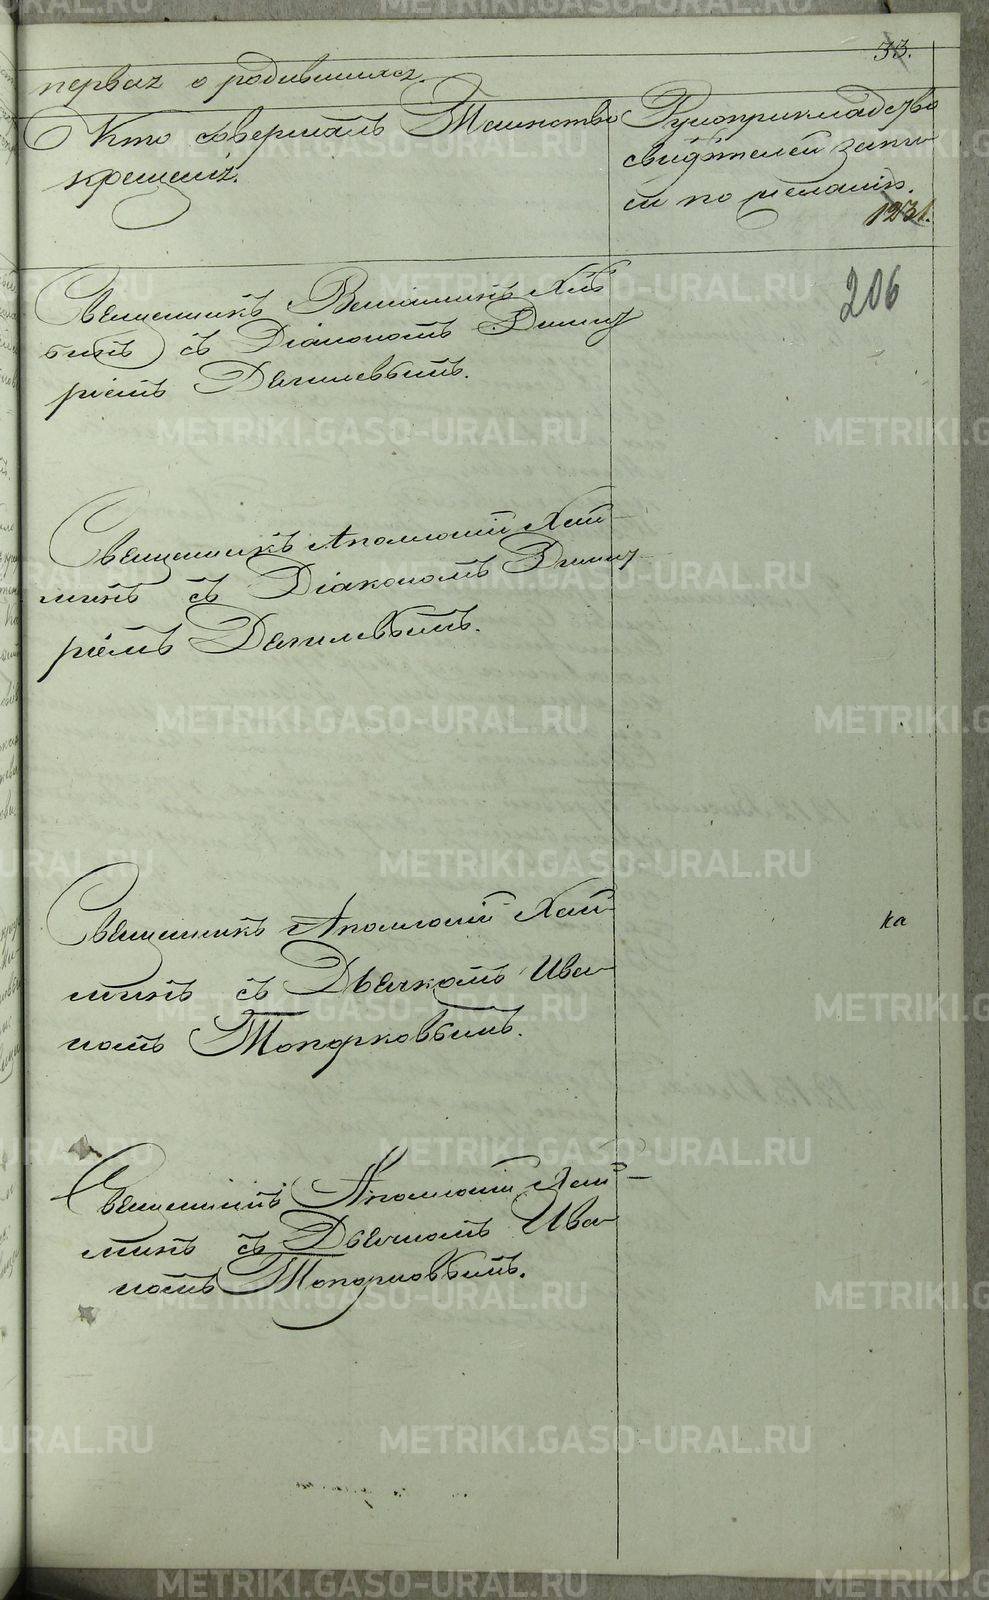 33.
первая о родившихся.
Кто совершалъ Таинство
крещенія.
Рукоприкладство
свидѣтелей запи-
си по желанію.
1231.
206
Священникъ Веніаминъ
съ Діакономъ Димит
ріемъ Денилевымъ.
Священникъ Аполлоній Хай-
минъ съ Діакономъ Димит-
ріемъ Денилевымъ.
Священникъ Аполлоній Хай-
минъ съ Дьячкомъ Ива-
номъ Топорковымъ.
ка
Священникъ Аполлоній Хай-
минъ съ Дьячкомъ Ива-
номъ Топорковымъ.
METRIKI.GASO-URAL.RU